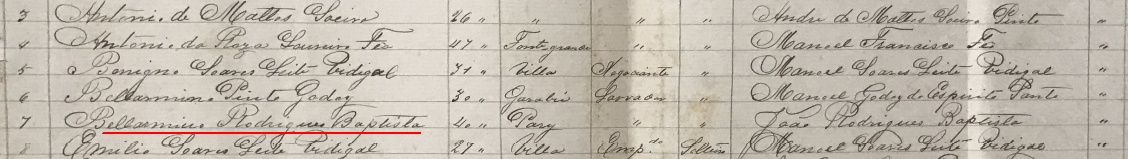 3 Antonio de Mattos Soeiro 26 " " " " Andre de Mattos Soeiro Pinto "
4 Antonio da Roza Loureiro Fés 47 " Fonte grande " " Manoel Francisco Fés "
5 Benigno Soares Leite Vidigal 31 " Villa Negociante " Manoel Soares Leite Vidigal "
6 Bellarmino Pinto Godoy 30 " Lavrador " Manoel Godoy do Espirito Santo "
7 Bellarmino Rodrigues Baptista 40 " Pary " " João Rodrigues Baptista "
8 Emilio Soares Leite Vidigal 29 " Villa Emp.do Solteiro Manoel Soares Leite Vidigal "